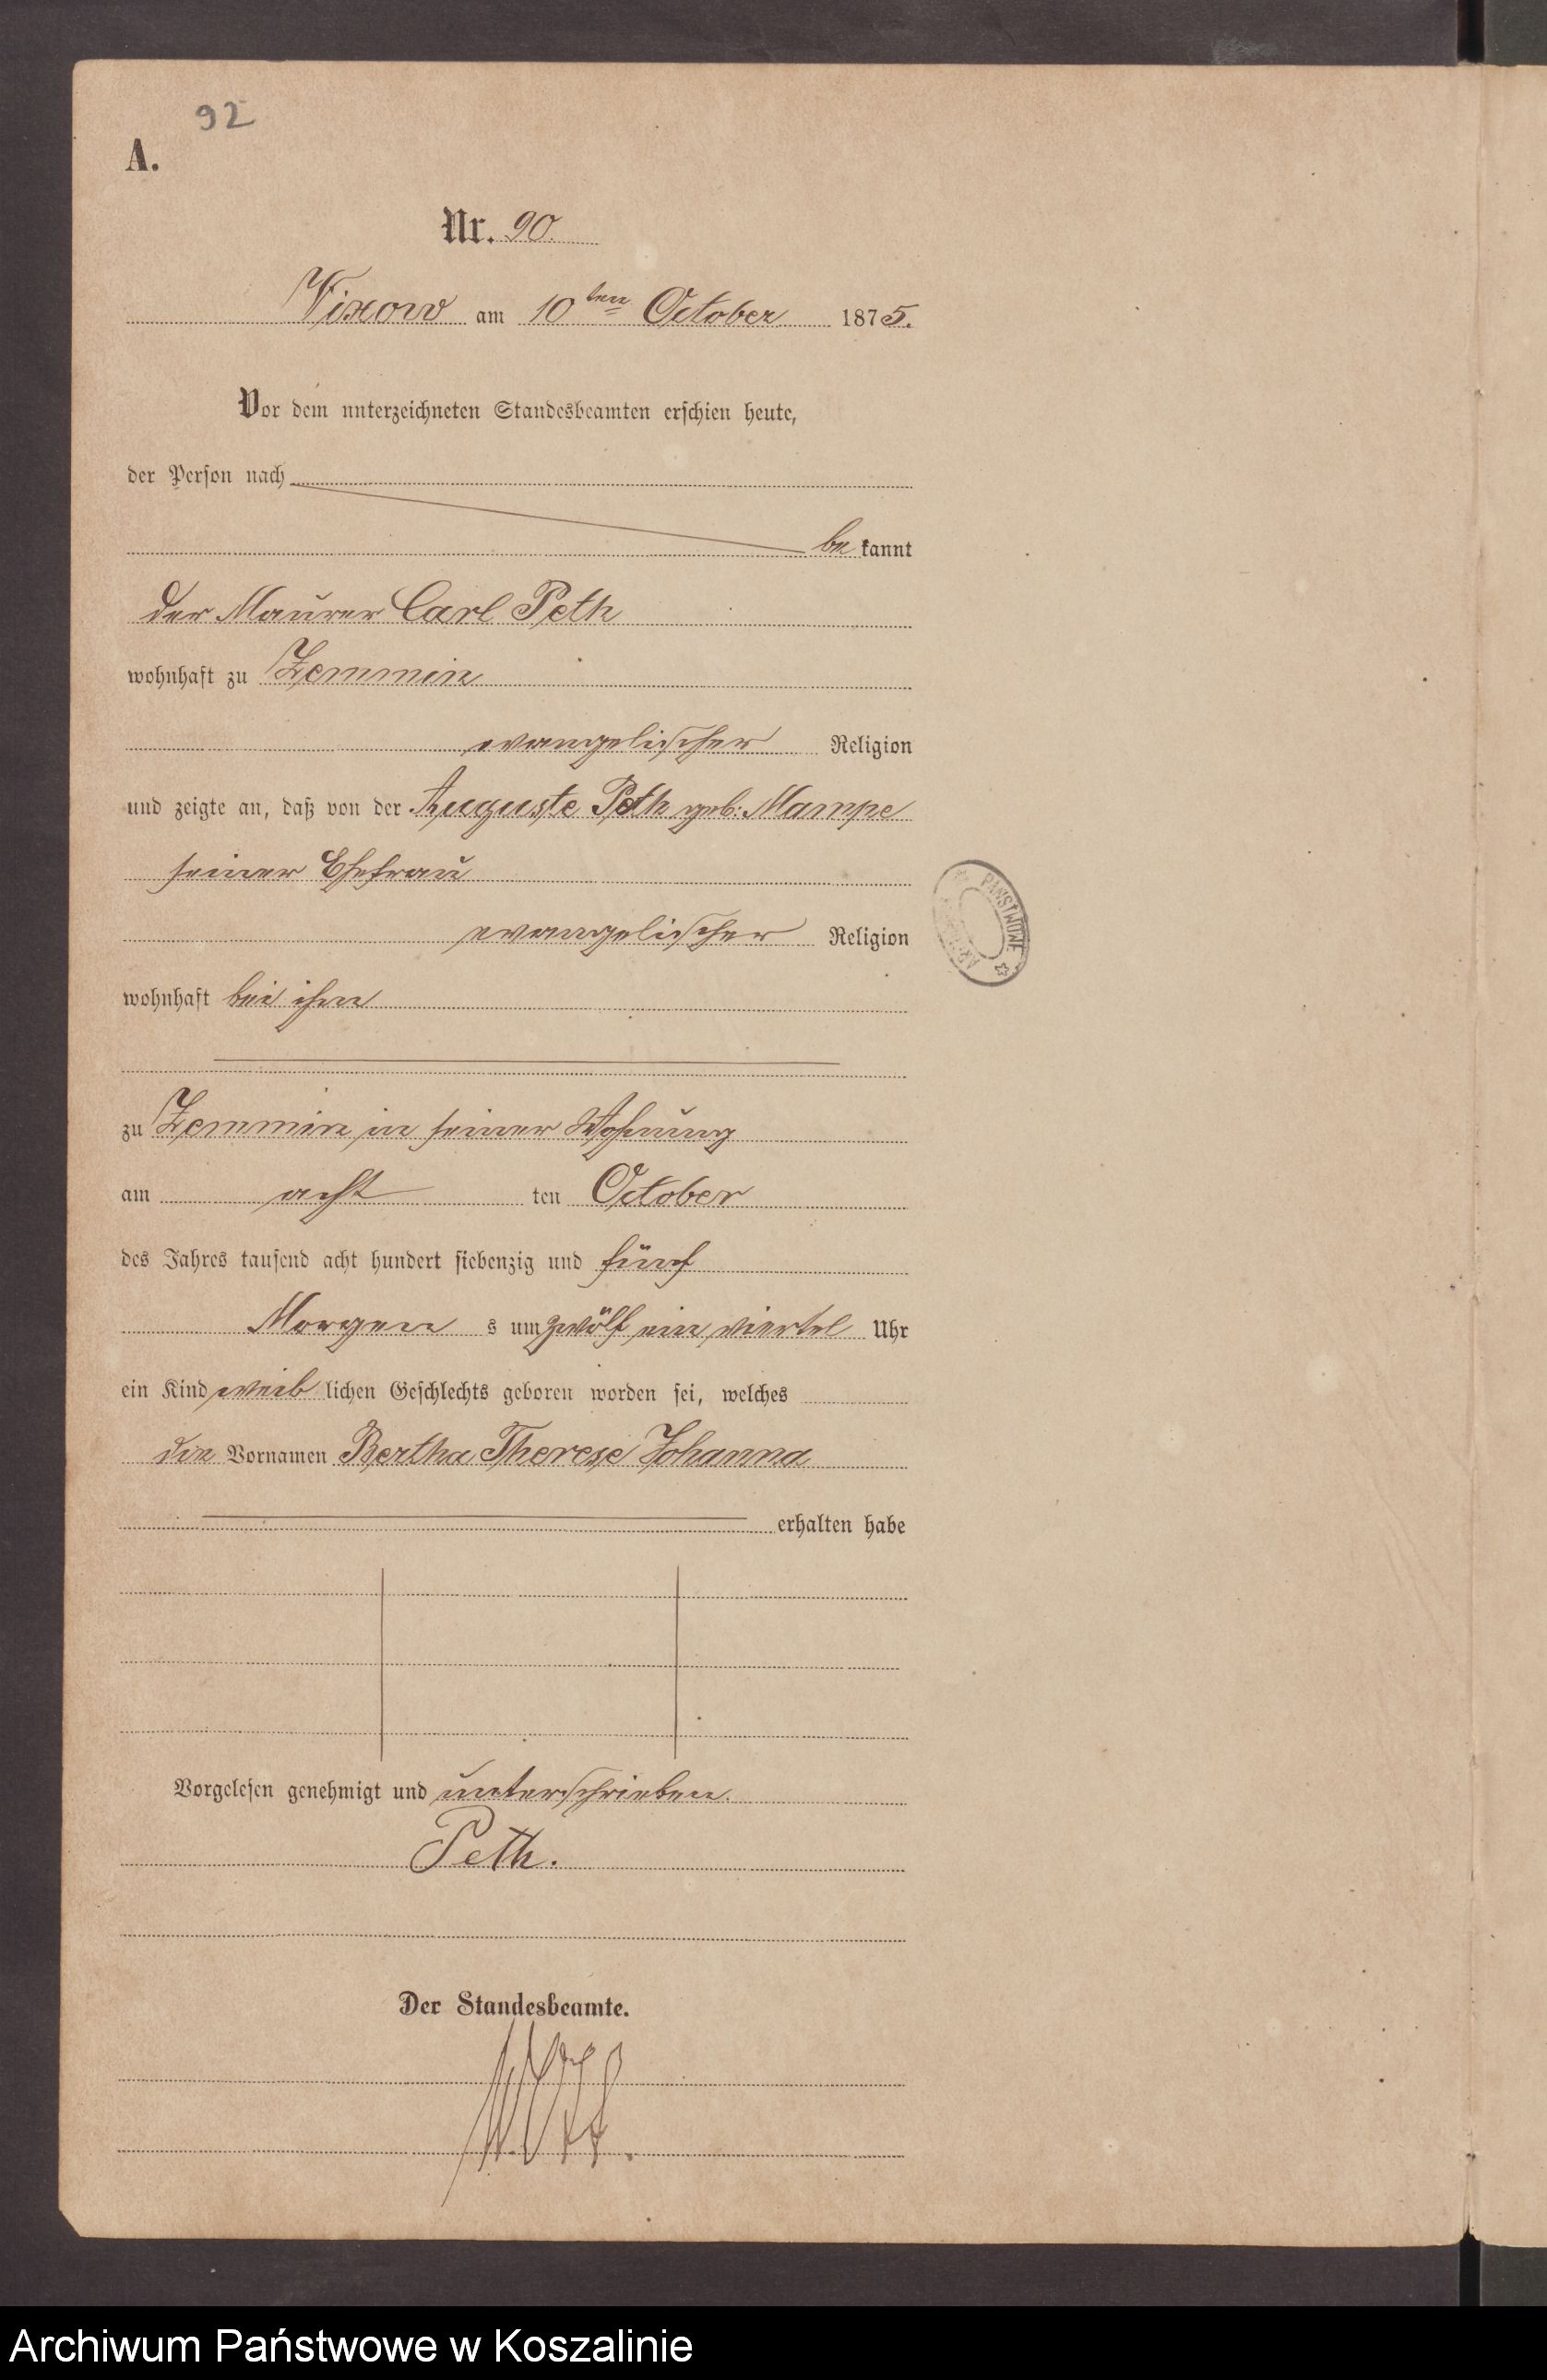 92
A.
Nr. 90.
Vixow am 10ten October 1875.
Vor dem unterzeichneten Standesbeamten erschien heute,
der Person nach
be kannt
der Maurer Carl Peth
wohnhaft zu Zemmin
evangelischer Religion
und zeigte an, daß von der Auguste Peth geb: Mampe
seiner Ehefrau
evangelischer Religion
PAŃSTWOWE
wohnhaft bei ihm
zu Zemmin in seiner Wohnung
am acht ten October
des Jahres tausend acht hundert siebenzig und fünf
Morgen s um zwölf ein viertel Uhr
ein Kind weib lichen Geschlechts geboren worden sei, welches
die Vornamen Bertha Therese Johanna
erhalten habe
Vorgelesen genehmigt und unterschrieben.
Peth.
Der Standesbeamte.
Archiwum Państwowe w Koszalinie